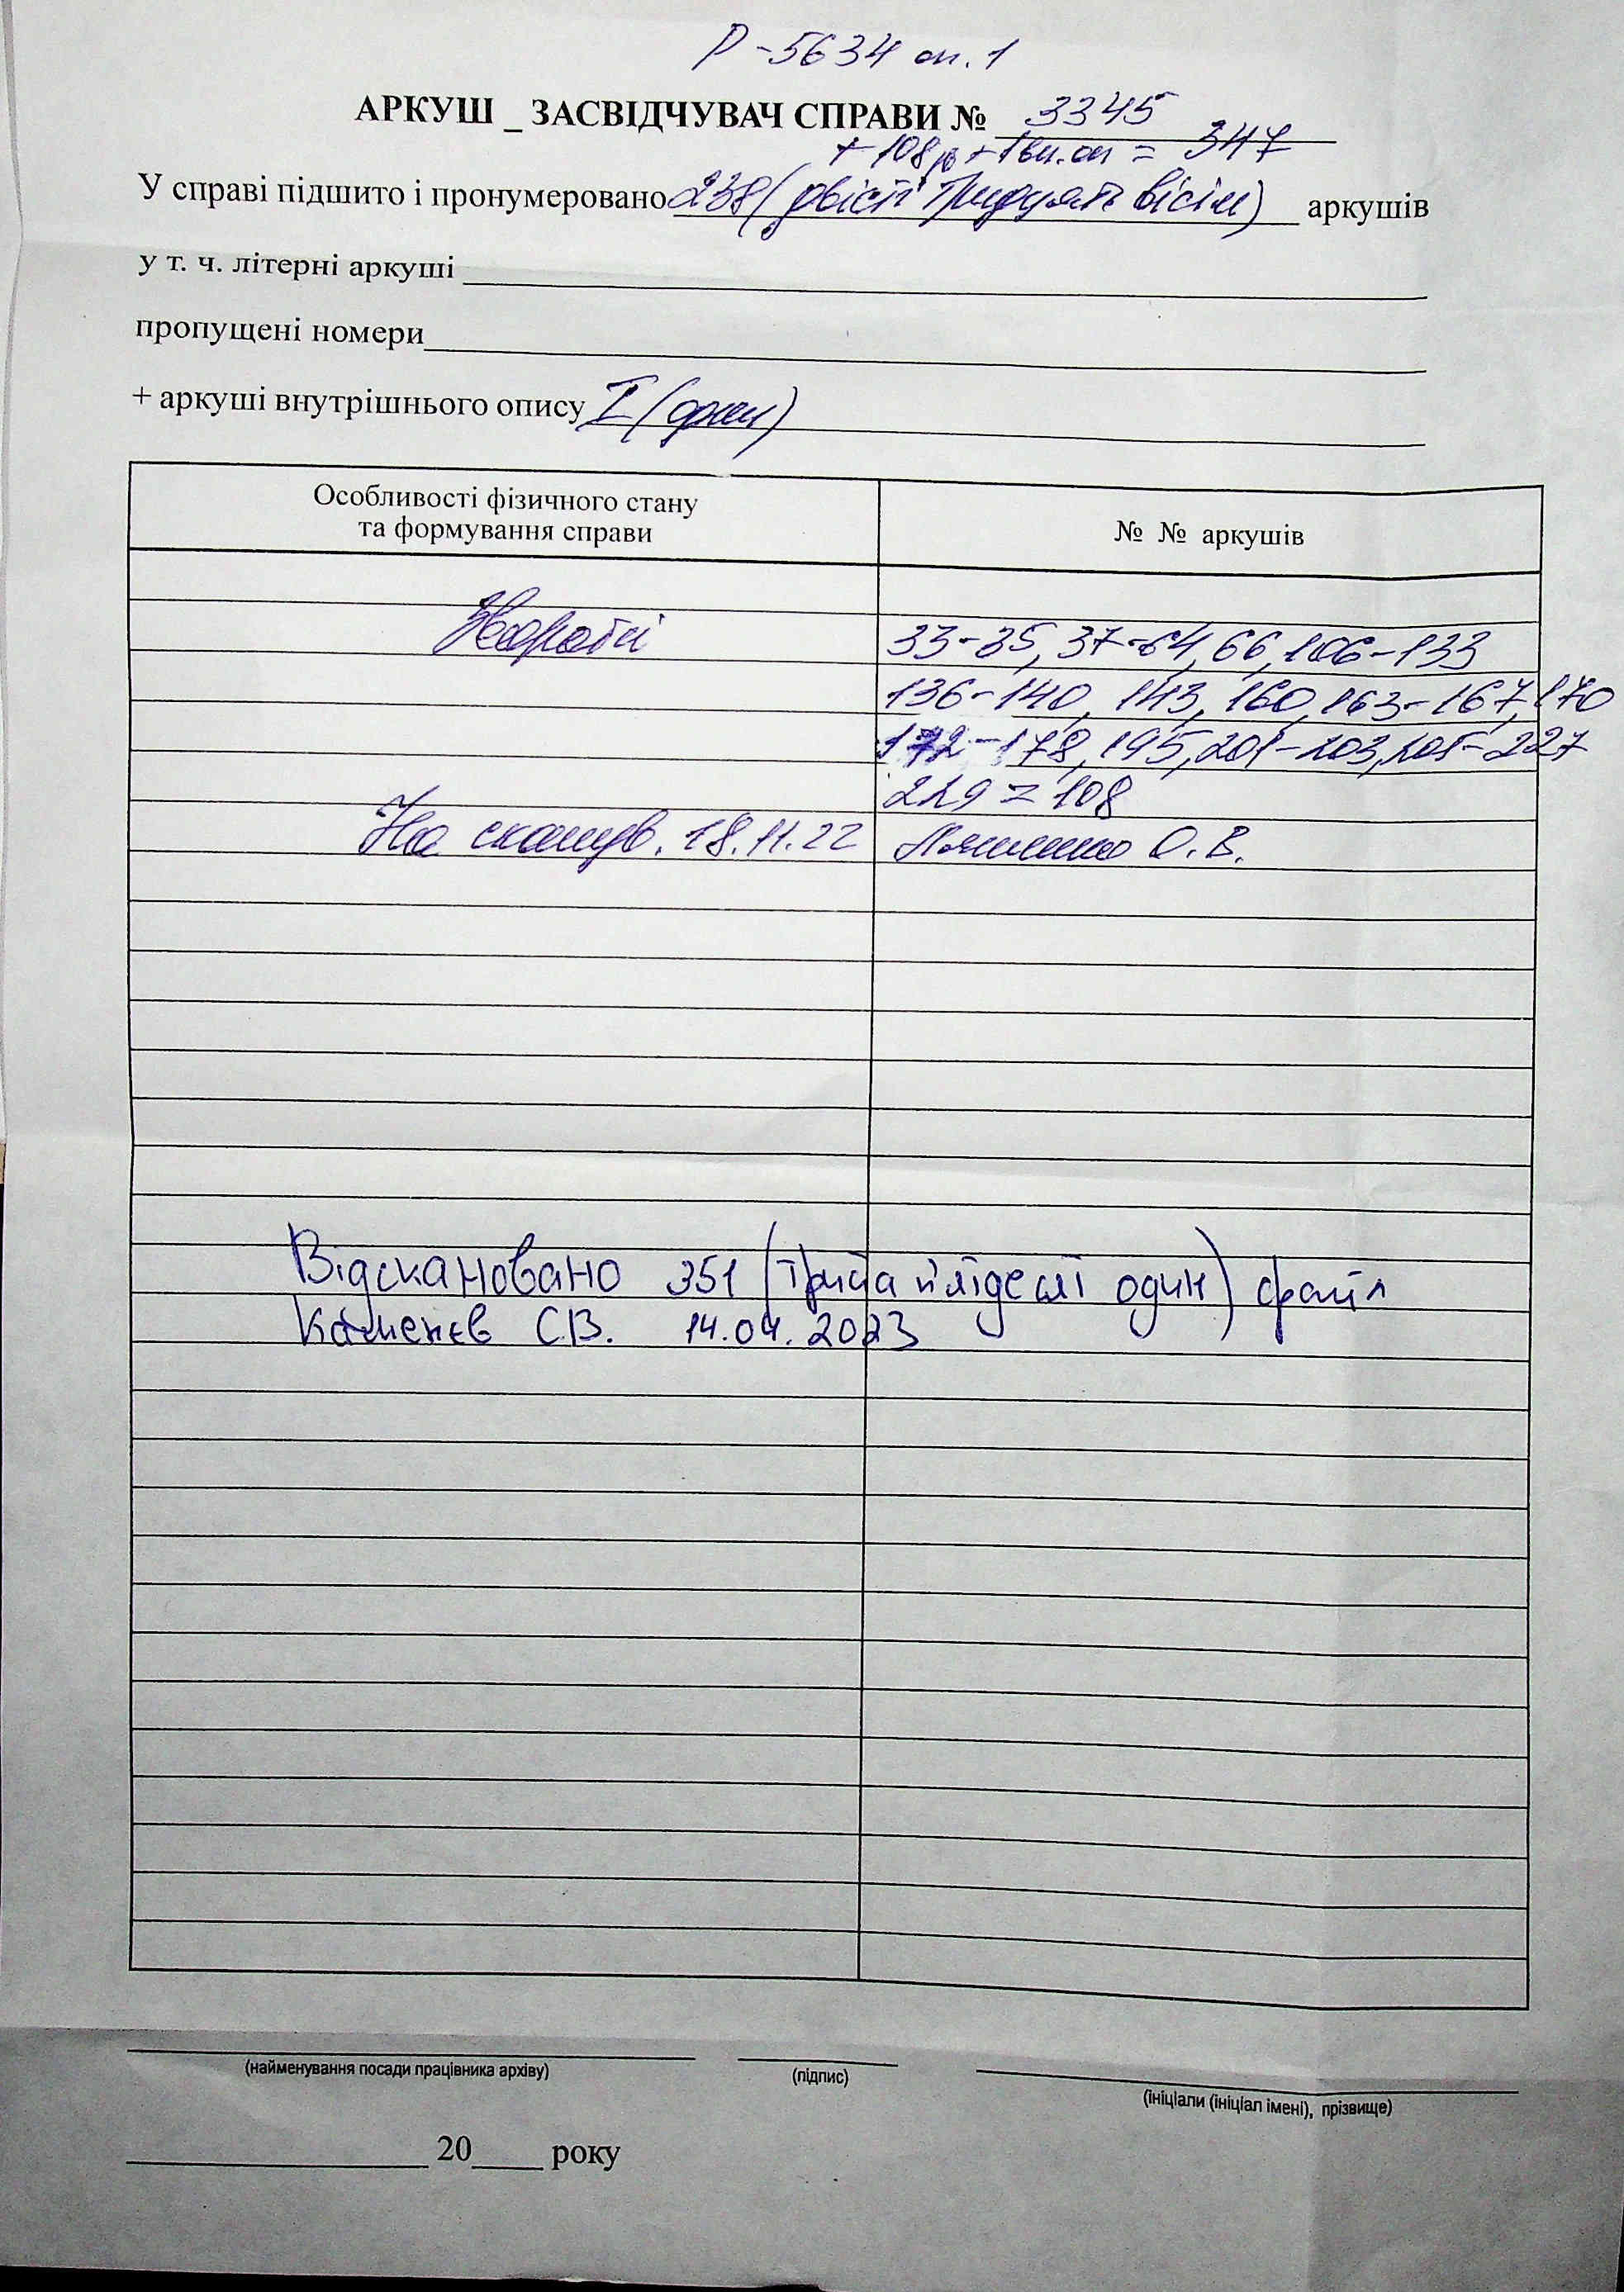 Р-5634 оп.1
АРКУШ _ ЗАСВІДЧУВАЧ СПРАВИ № 3345
+ 108 + 1вн.оп = 347
У справі підшито і пронумеровано 238 (двісті тридцять вісім) аркушів
у т. ч. літерні аркуші
пропущені номери
+ аркуші внутрішнього опису I (один)
Особливості фізичного стану
та формування справи
№ № аркушів
Звороти 33-35, 37-64, 66, 106-133
136-140, 143, 160, 163-167, 170
172-178, 195, 201-203, 205-227
229 = 108
На сканув. 18.11.22 О.В.
Відскановано 351 (триста п'ятдесят один) файл
Каменєв С.В. 14.04.2023
(найменування посади працівника архіву)
(підпис)
(ініціали (ініціал імені), прізвище)
20 року